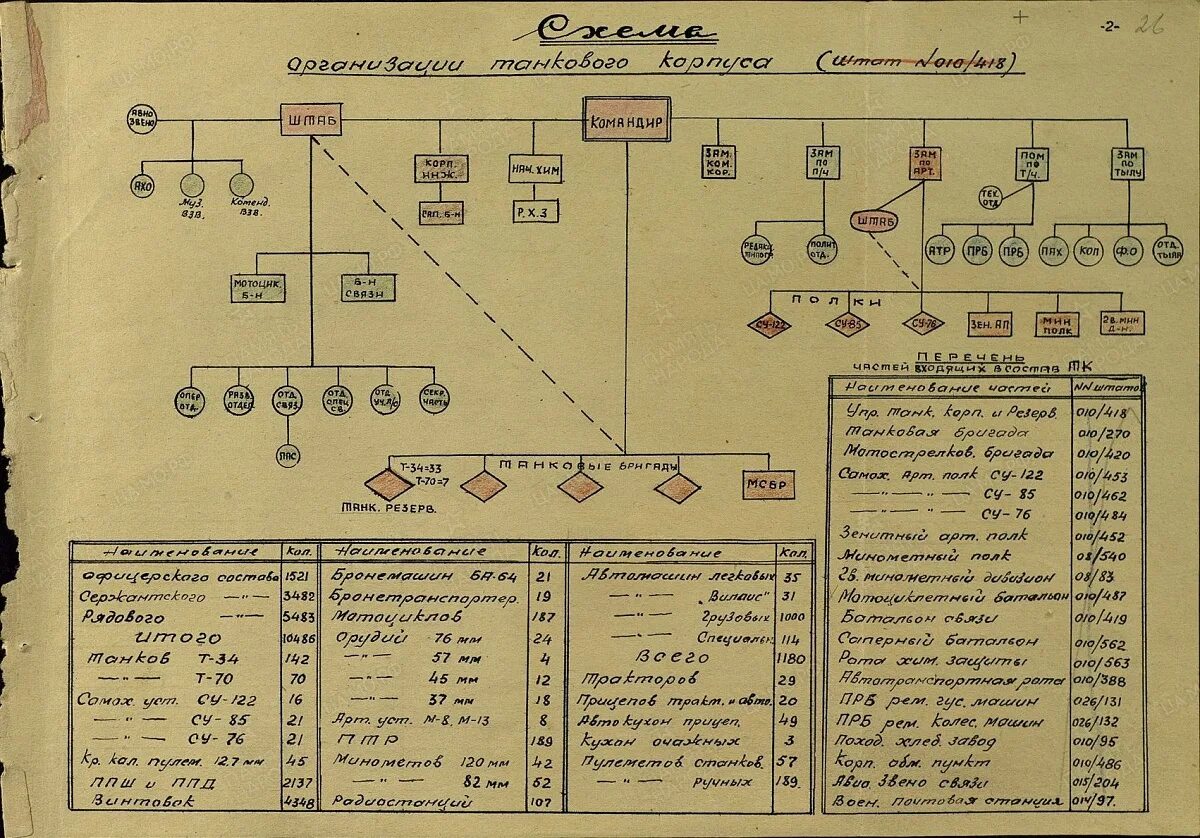 Схема
-2- 26
организации танкового корпуса (штат №010/418)
АВИО ЗВЕНО
ШТАБ
КОМАНДИР
АХО
Муз. взв.
Коменд. взв.
КОРП. ИНЖ.
САП. Б-Н
НАЧ. ХИМ
Р.Х.З
ЗАМ. КОМ. КОР.
ЗАМ ПО П/Ч
ЗАМ ПО АРТ.
ПОМ ПО Т/Ч.
ЗАМ ПО ТЫЛУ
ШТАБ
ТЕХ. ОТД
ПОЛИТ ОТД.
АТР
ПРБ
ПРБ
ПАХ
КОП
Ф.О
ОТД. ТЫЛА
МОТОЦИК. Б-Н
Б-Н СВЯЗИ
ПОЛКИ
СУ-122
СУ-85
СУ-76
ЗЕН. АП
МИН ПОЛК
ГВ. МИН Д-Н.
ОПЕР ОТД.
РАЗВ. ОТДЕЛ
ОТД. СВЯЗ.
ОТД. СПЕЦ СВ.
ОТД. УЧ. Л/С
СЕКР. ЧАСТЬ
ПАС
Т-34=33
Т-70=7
ТАНКОВЫЕ БРИГАДЫ
МСБР
ТАНК. РЕЗЕРВ.
ПЕРЕЧЕНЬ
ЧАСТЕЙ ВХОДЯЩИХ В СОСТАВ ТК
Наименование частей NN штатов
Упр. танк. корп. и Резерв. 010/418
Танковая бригада 010/270
Мотострелков. бригада 010/420
Самох. Арт. полк СУ-122 010/453
—"— —"— СУ-85 010/462
—"— —"— СУ-76 010/484
Зенитный арт. полк 010/452
Минометный полк 08/540
Гв. минометный дивизион 08/83
Мотоциклетный батальон 010/487
Батальон связи 010/419
Саперный батальон 010/562
Рота хим. защиты 010/563
Автотранспортная рота 010/388
ПРБ рем. гус. машин 026/131
ПРБ рем. колес. машин 026/132
Поход. хлеб. завод 010/95
Корп. обм. пункт 010/486
Авиа. звено связи 015/204
Воен. почтовая станция 014/97.
Наименование Кол.
офицерского состава 1521
Сержантского —"— 3482
Рядового —"— 5483
Итого 10486
Танков Т-34 142
—"— Т-70 70
Самох. уст. СУ-122 16
—"— СУ-85 21
—"— СУ-76 21
Кр. кал. пулем. 12.7 мм 45
ППШ и ППД 2137
Винтовок 4348
Наименование Кол.
Бронемашин БА-64 21
Бронетранспортер. 19
Мотоциклов 187
Орудий 76 мм 24
—"— 57 мм 4
—"— 45 мм 12
—"— 37 мм 18
Арт. уст. М-8, М-13 8
ПТР 189
Минометов 120 мм 42
—"— 82 мм 52
Радиостанций 107
Наименование Кол.
Автомашин легковых 35
—"— "Виллис" 31
—"— Грузовых 1000
—"— Специальн. 114
Всего 1180
Тракторов 29
Прицепов тракт. и авто. 20
Автокухон прицеп. 49
Кухон очажных 3
Пулеметов станков. 57
—"— ручных 189.